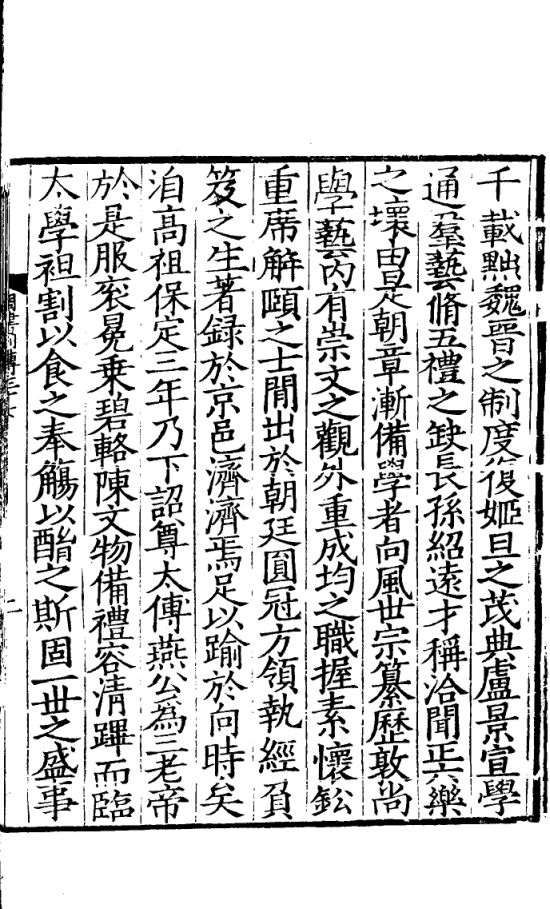 千載黜魏晉之制度復姬旦之茂典盧景宣學
通羣藝脩五禮之缺長孫紹遠才稱洽聞正六樂
之壞由是朝章漸備學者向風世宗纂歷敦尚
學藝內有崇文之觀外重成均之職握素懷鈆
重席解頤之士閒出於朝廷圓冠方領執經負
笈之生著録於京邑濟濟焉足以踰於向時矣
洎高祖保定三年乃下詔尊太傅燕公為三老帝
於是服衮冕乗碧輅陳文物備禮容清蹕而臨
太學袒割以食之奉觴以酳之斯固一世之盛事